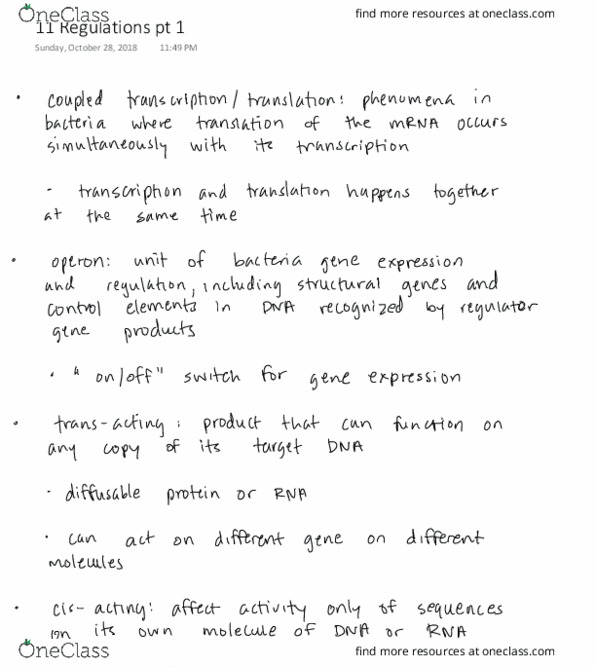 OneClass
find more resources at oneclass.com
11 Regulations pt 1
Sunday, October 28, 2018 11:49 PM
• coupled transcription/translation: phenomena in
bacteria where translation of the mRNA occurs
simultaneously with its transcription
- transcription and translation happens together
at the same time
• operon: unit of bacteria gene expression
and regulation, including structural genes and
control elements in DNA recognized by regulator
gene products
• "on/off" switch for gene expression
• trans-acting: product that can function on
any copy of its target DNA
• diffusable protein or RNA
• can act on different gene on different
molecules
• cis-acting: affect activity only of sequences
on its own molecule of DNA or RNA
OneClass
find more resources at oneclass.com